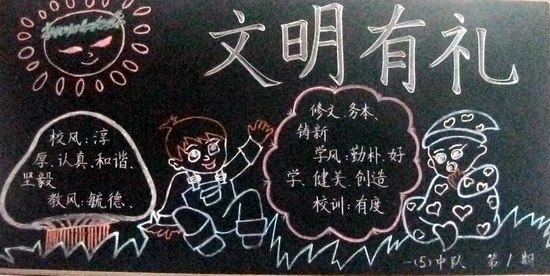 文明有礼
校风:淳
厚、认真、和谐、
坚毅
教风:毓德、
修文、务本、
铸新
学风:勤朴、好
学、健美、创造
校训:有度
一(5)中队 第1期